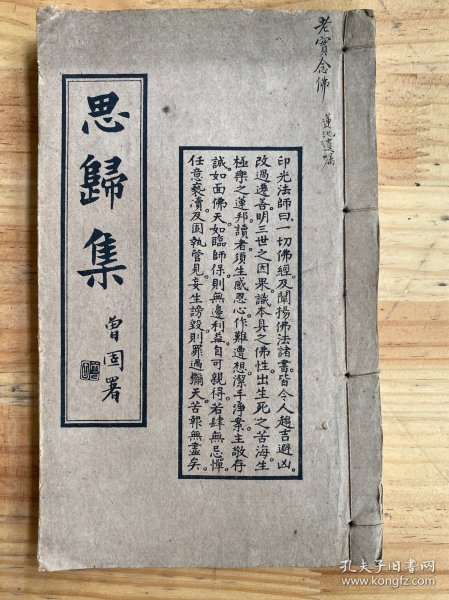 老實念佛
蓮池遺囑
思歸集
曾固署
印光法師曰一切佛經及闡揚佛法諸書皆令人趨吉避凶。
改過遷善。明三世之因果識本具之佛性出生死之苦海生
極樂之蓮邦讀者須生感恩心作難遭想潔手淨案主敬存
誠如面佛天如臨師保則無邊利益自可親得若肆無忌憚。
任意褻瀆及固執管見妄生謗毀則罪過彌天苦報無盡矣。
孔夫子旧书网
www.kongfz.com